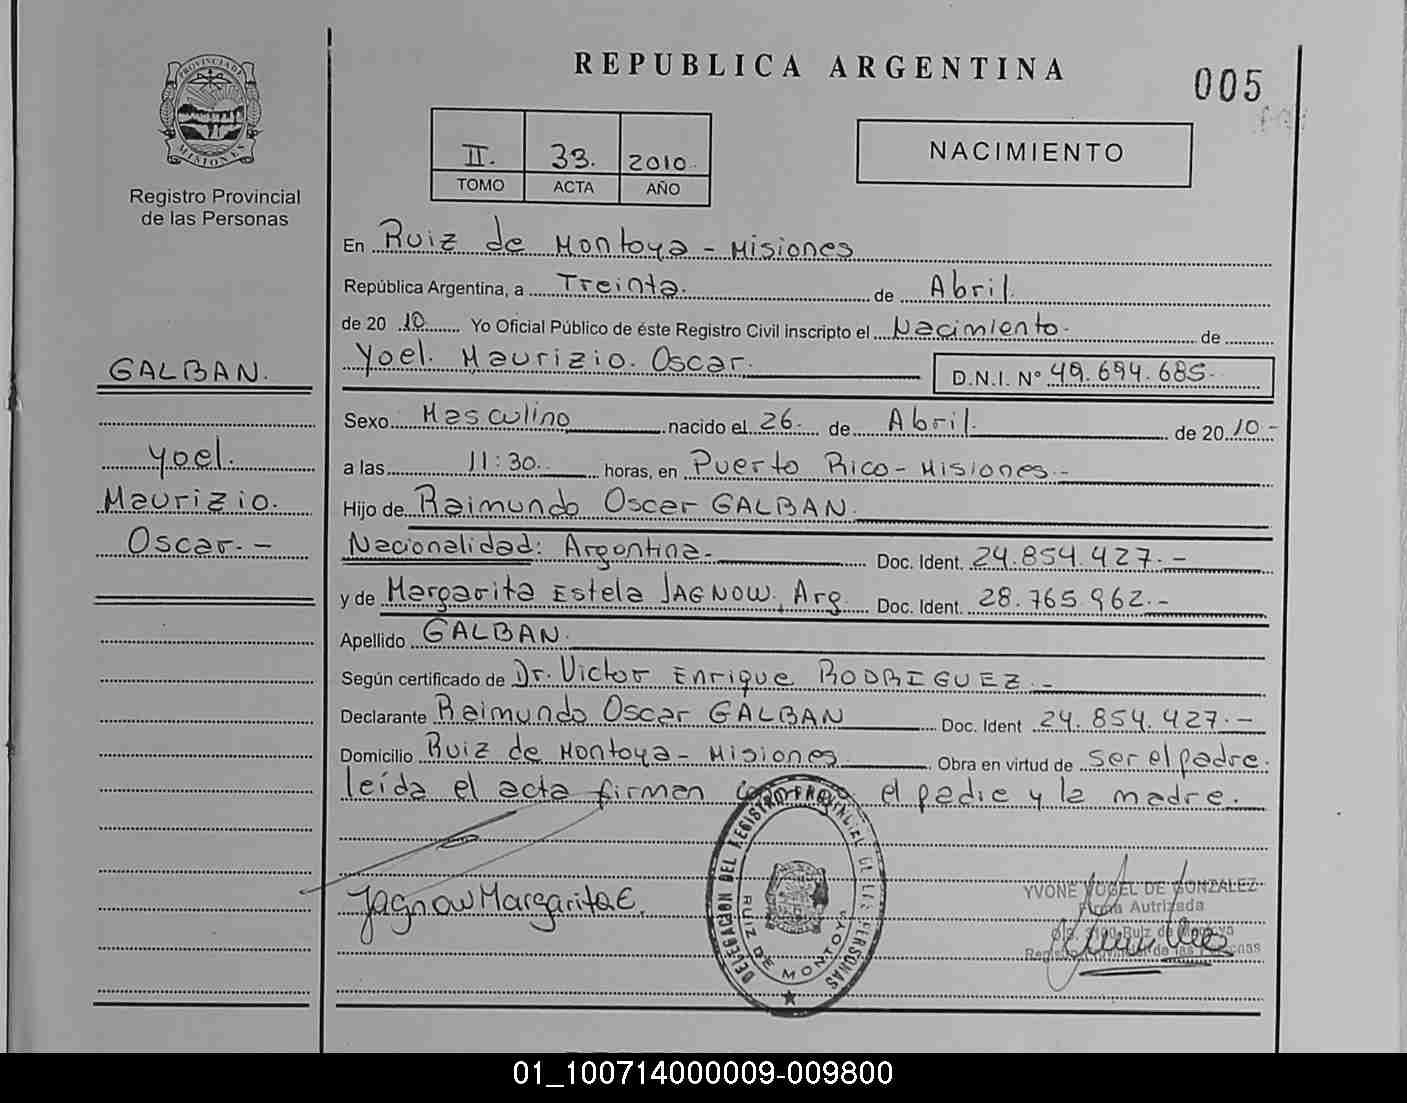 REPUBLICA ARGENTINA
005
PROVINCIA DE
MISIONES
Registro Provincial
de las Personas
II. 33. 2010.
TOMO ACTA AÑO
NACIMIENTO
En Ruiz de Montoya - Misiones
República Argentina, a Treinta. de Abril.
de 20 10 Yo Oficial Público de éste Registro Civil inscripto el Nacimiento. de
Yoel. Maurizio. Oscar.
D.N.I. Nº 49.694.685.
GALBAN.
Yoel.
Maurizio.
Oscar. -
Sexo Masculino nacido el 26. de Abril. de 20 10 -
a las 11:30. horas, en Puerto Rico - Misiones. -
Hijo de Raimundo Oscar GALBAN.
Nacionalidad: Argentina. Doc. Ident. 24.854.427. -
y de Margarita Estela JAGNOW, Arg. Doc. Ident. 28.765.962. -
Apellido GALBAN.
Según certificado de Dr. Victor Enrique RODRIGUEZ. -
Declarante Raimundo Oscar GALBAN Doc. Ident 24.854.427. -
Domicilio Ruiz de Montoya - Misiones Obra en virtud de ser el padre.
leída el acta firman el padre y la madre.
Jagnow Margarita E.
DELEGACION DEL REGISTRO PROVINCIAL DE LAS PERSONAS
RUIZ DE MONTOYA
YVONE VOGEL DE GONZALEZ
Firma Autrizada
Ruiz de Montoya
Registro Provincial de las Personas
01_100714000009-009800